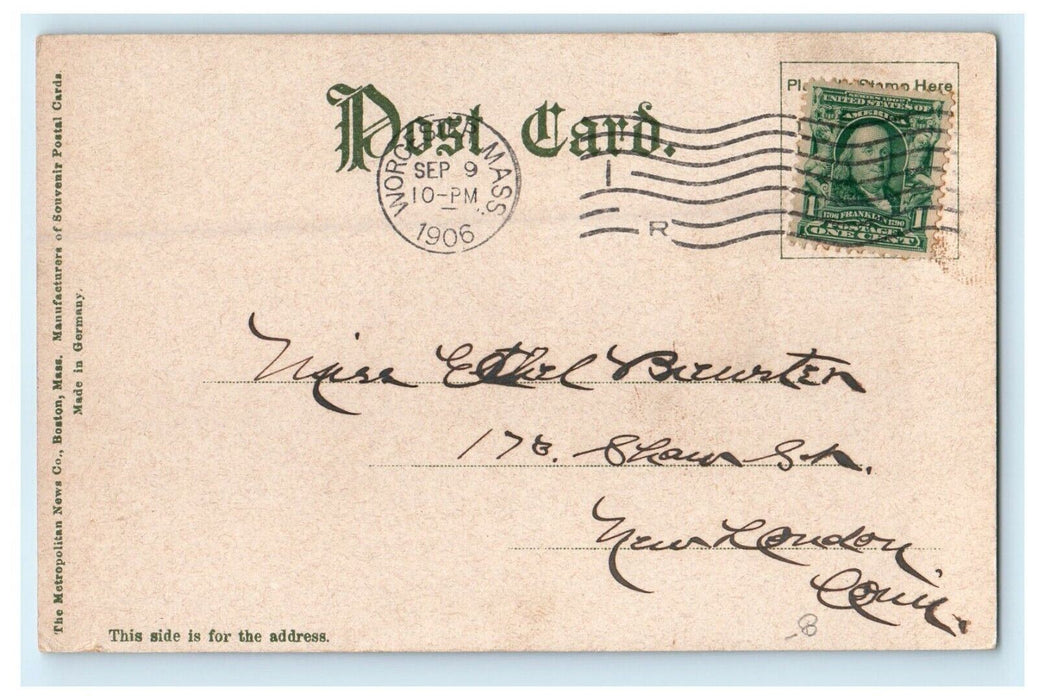 Post Card.
Place the Stamp Here
WORCESTER MASS.
SEP 9
10-PM
1906
R
SERIES 1902
UNITED STATES OF
AMERICA
1 1706 FRANKLIN 1790 1
POSTAGE
ONE CENT
Miss Ethel Brewster
178. Shaw St.
New London,
Conn.
The Metropolitan News Co., Boston, Mass. Manufacturers of Souvenir Postal Cards.
Made in Germany.
This side is for the address.
B